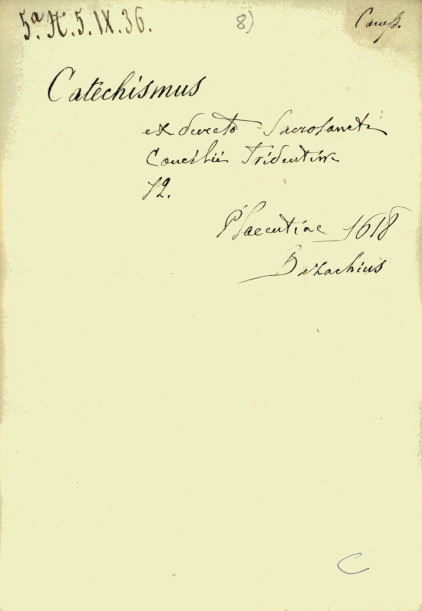 5.ª H. 5. IX. 36.
8)
Catechismus
ex decreto Sacrosancti
Concilii Tridentini
12.
Placentiae 1618
C